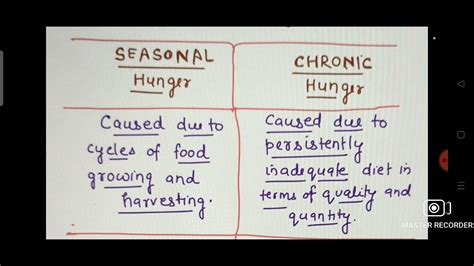 SEASONAL
Hunger
CHRONIC
Hunger
Caused due to
cycles of food
growing and
harvesting.
Caused due to
persistently
inadequate diet in
terms of quality and
quantity.
MASTER RECORDER